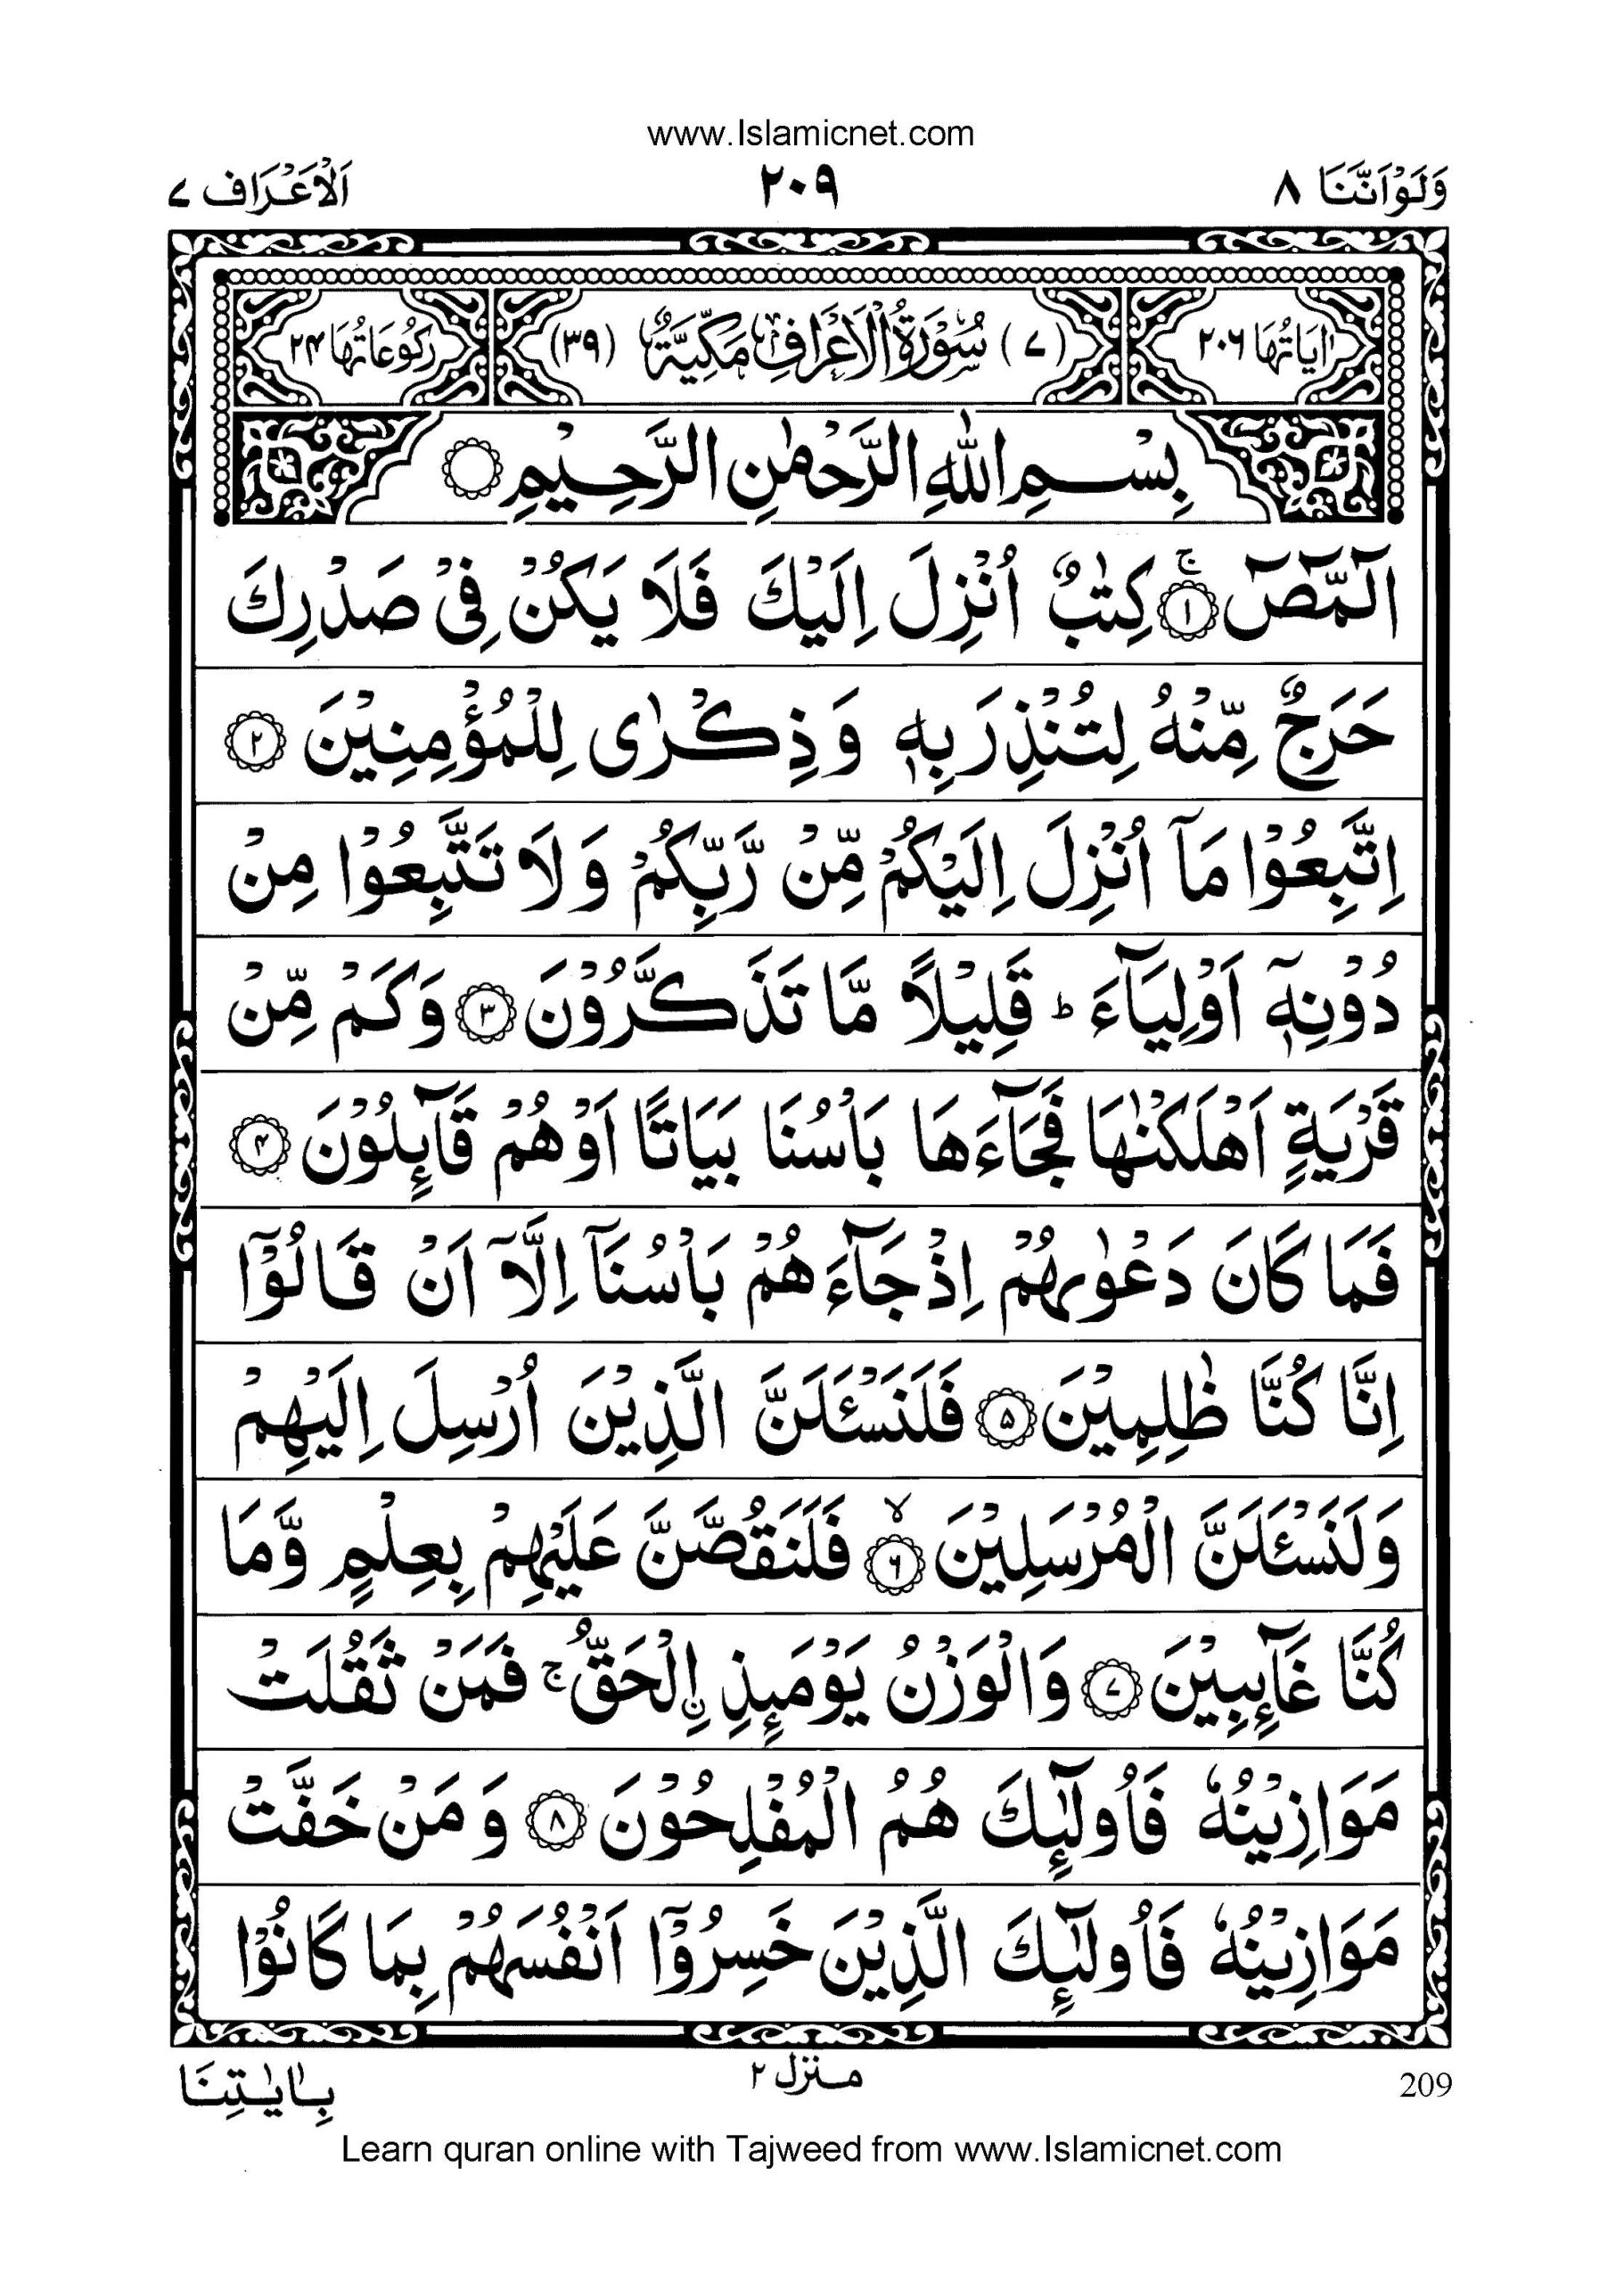 www.Islamicnet.com
وَلَوْاَنَّنَا ٨
٢٠٩
اَلْاَعْرَاف ٧
اٰيَاتُهَا ٢٠٦
(٧) سُوْرَةُ الْاَعْرَافِ مَكِّيَّةٌ (٣٩)
رُكُوْعَاتُهَا ٢٤
بِسْمِ اللّٰهِ الرَّحْمٰنِ الرَّحِيْمِ ۝
الٓمّٓصٓ ۝١ۚ كِتٰبٌ اُنْزِلَ اِلَيْكَ فَلَا يَكُنْ فِيْ صَدْرِكَ
حَرَجٌ مِّنْهُ لِتُنْذِرَ بِهٖ وَذِكْرٰى لِلْمُؤْمِنِيْنَ ۝٢
اِتَّبِعُوْا مَآ اُنْزِلَ اِلَيْكُمْ مِّنْ رَّبِّكُمْ وَلَا تَتَّبِعُوْا مِنْ
دُوْنِهٖٓ اَوْلِيَآءَ ؕ قَلِيْلًا مَّا تَذَكَّرُوْنَ ۝٣ وَكَمْ مِّنْ
قَرْيَةٍ اَهْلَكْنٰهَا فَجَآءَهَا بَاْسُنَا بَيَاتًا اَوْ هُمْ قَآئِلُوْنَ ۝٤
فَمَا كَانَ دَعْوٰىهُمْ اِذْ جَآءَهُمْ بَاْسُنَآ اِلَّآ اَنْ قَالُوْٓا
اِنَّا كُنَّا ظٰلِمِيْنَ ۝٥ فَلَنَسْـَٔلَنَّ الَّذِيْنَ اُرْسِلَ اِلَيْهِمْ
وَلَنَسْـَٔلَنَّ الْمُرْسَلِيْنَ ۝٦ۙ فَلَنَقُصَّنَّ عَلَيْهِمْ بِعِلْمٍ وَّمَا
كُنَّا غَآئِبِيْنَ ۝٧ وَالْوَزْنُ يَوْمَئِذِ ِۨالْحَقُّ ۚ فَمَنْ ثَقُلَتْ
مَوَازِيْنُهٗ فَاُولٰٓئِكَ هُمُ الْمُفْلِحُوْنَ ۝٨ وَمَنْ خَفَّتْ
مَوَازِيْنُهٗ فَاُولٰٓئِكَ الَّذِيْنَ خَسِرُوْٓا اَنْفُسَهُمْ بِمَا كَانُوْا
209
منزل ٢
بِاٰيٰتِنَا
Learn quran online with Tajweed from www.Islamicnet.com